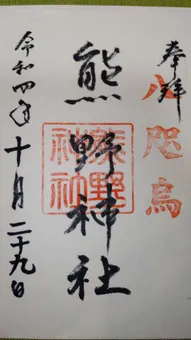 奉拝
八咫烏
熊野神社
熊野神社
令和四年
十月二十九日